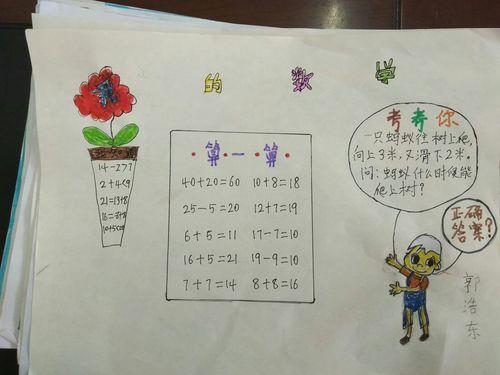 的 数 学
14-7=7
2+4<9
21=13+8
算一算
40+20=60 10+8=18
25-5=20 12+7=19
6+5=11 17-7=10
16+5=21 19-9=10
7+7=14 8+8=16
考考你
一只蚂蚁往树上爬,
向上3米,又滑下2米。
问:蚂蚁什么时候能
爬上树?
正确
答案?
郭
浩
东